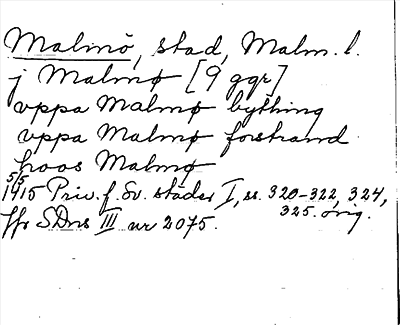 Malmö, stad, Malm. l.
j Malmø [9 ggr]
vppa Malmø bything
vppa Malmø forstrand
hoos Malmø
5/5
1415 Priv. f. Sv. städer I, ss. 320-322, 324,
325. orig.
jfr SDns III nr 2075.